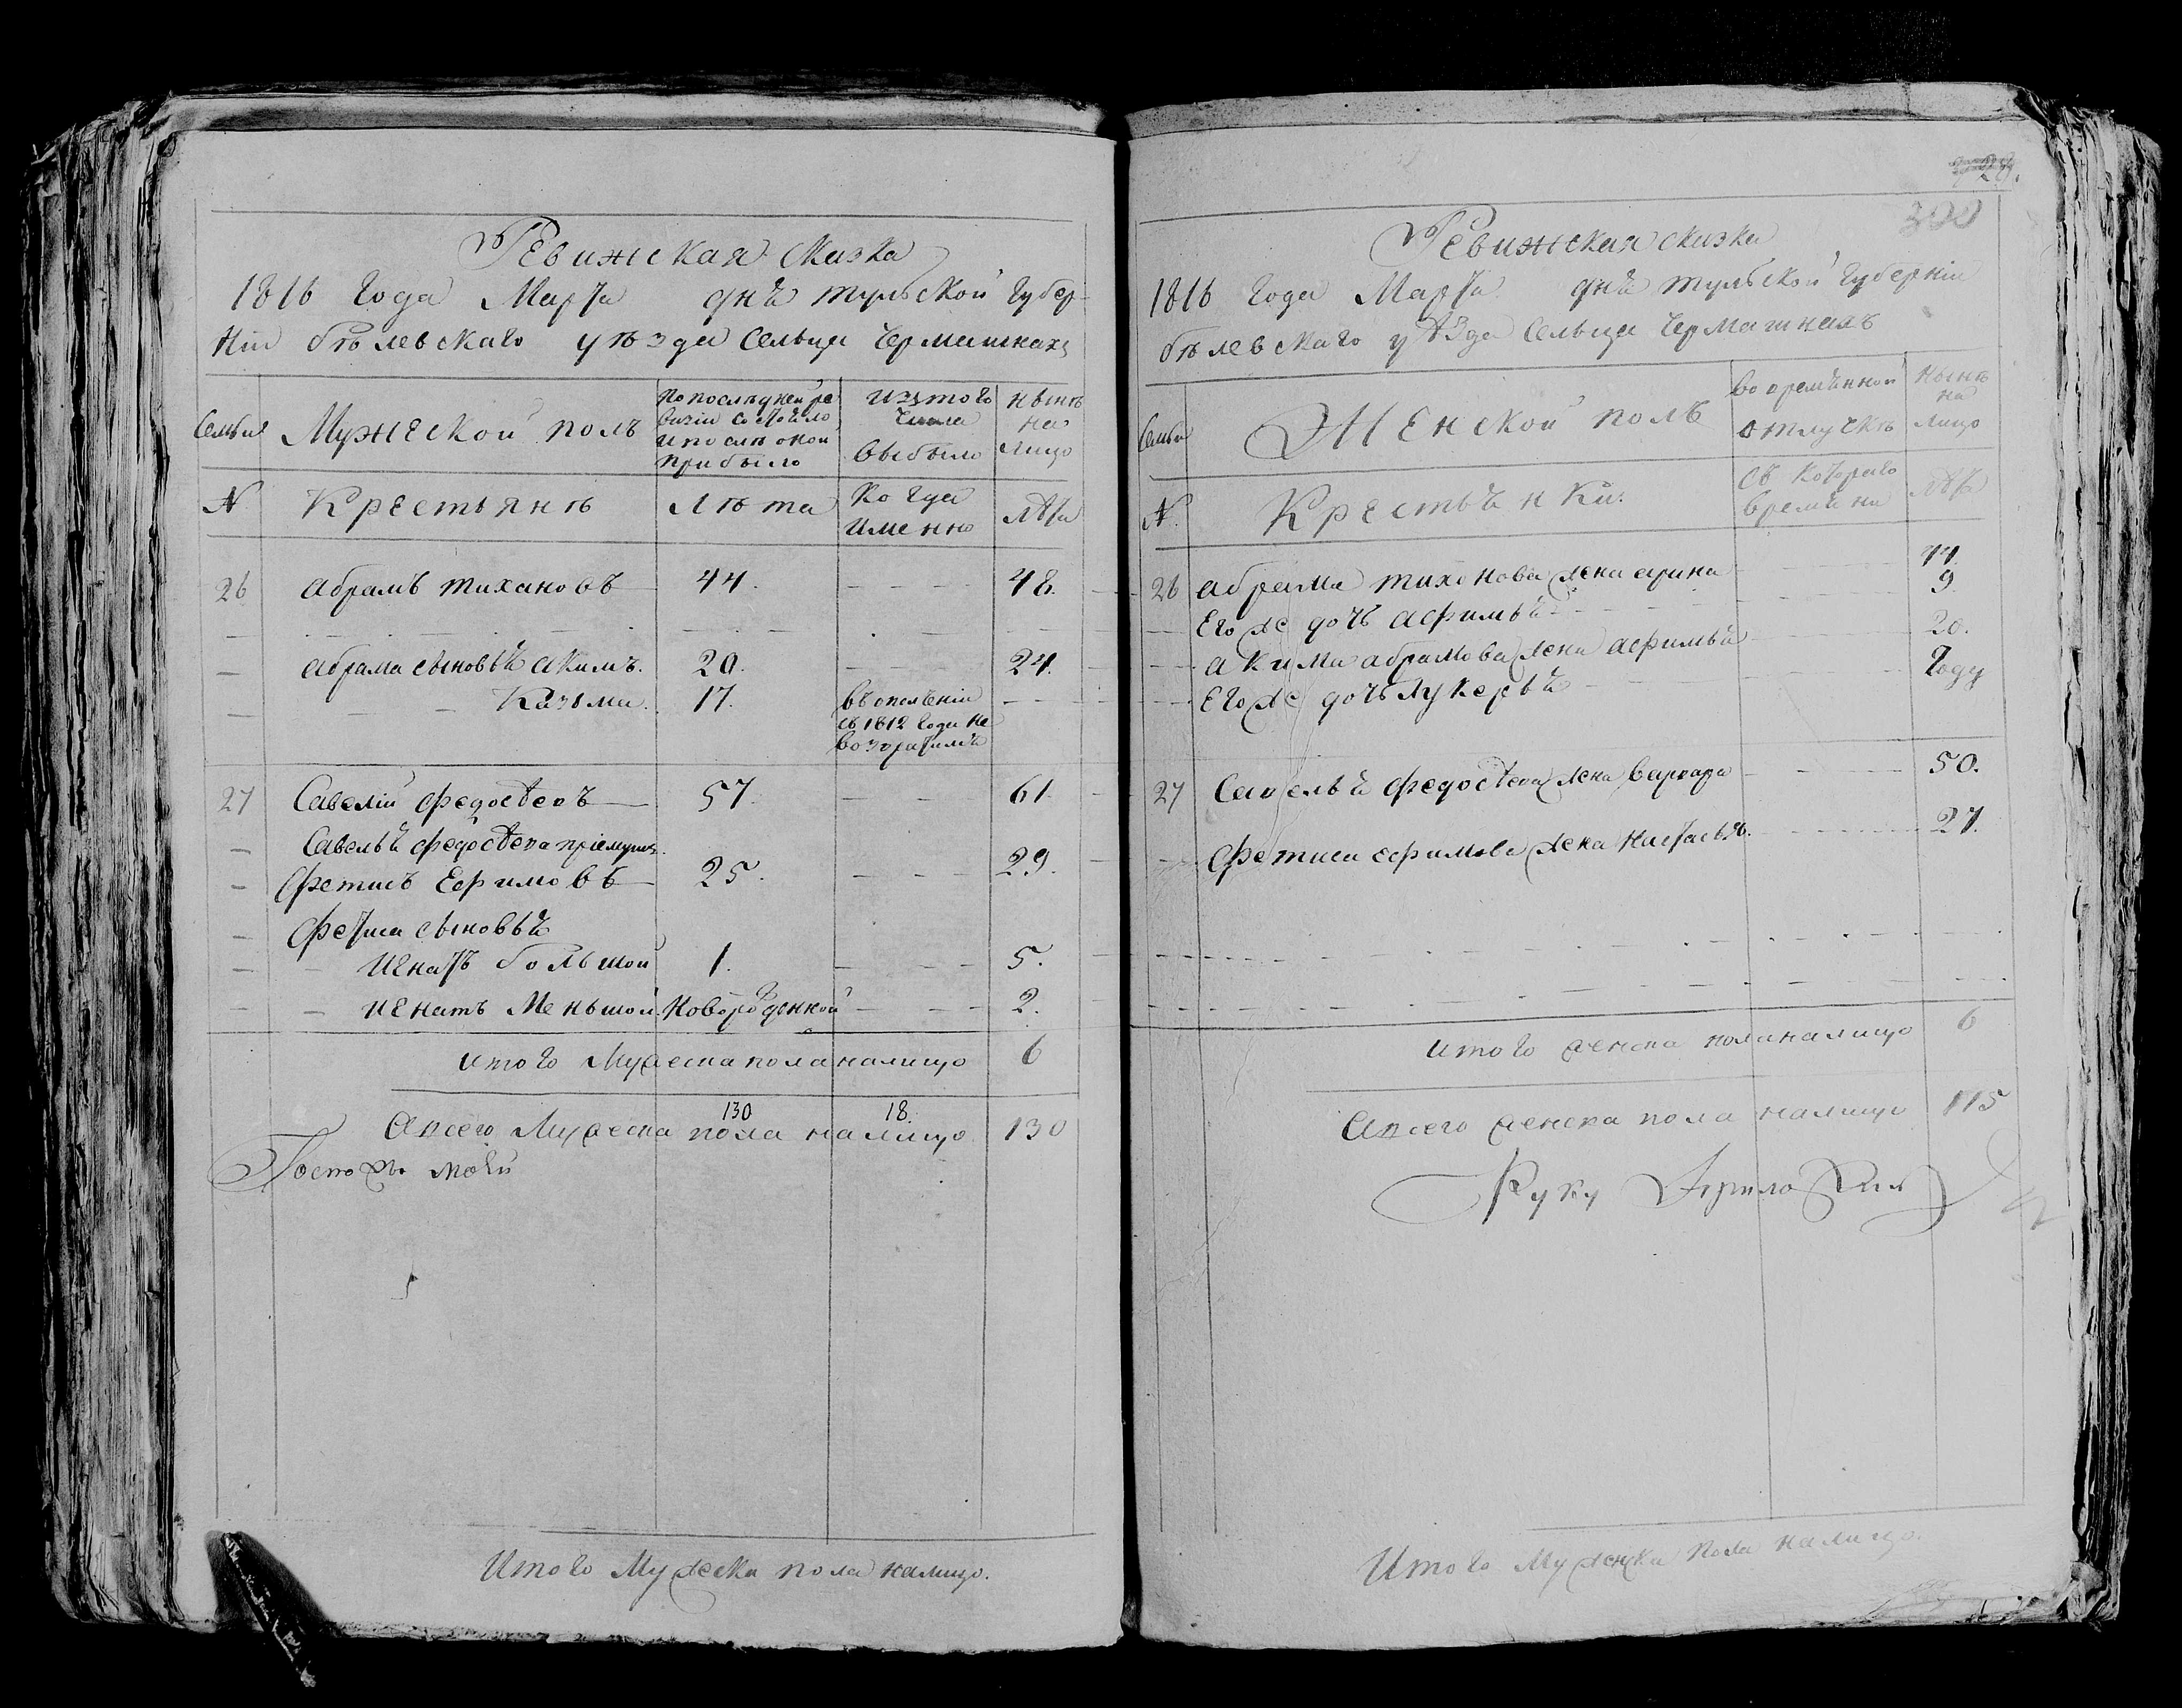 Ревижская сказка
1816 Года Марта дня тульской Губер-
нiи бѣлевскаго уѣзда Сельца Чермашнахъ
Семьи
Мужеской полъ
По последней ре
визiи состояло
и после оной
прибыло
изъ того
числа
выбыло
ныне
на
лицо
N
Крестьянѣ
Лѣта
Когда
именно
лѣта
26 абрамъ тихановъ 44. 48.
абрама сыновья акимъ. 20. 24.
Казьма. 17. въ ополченiи
съ 1812 Года не
возвратился
27 Савелiй федосеевъ 57. 61.
Савелья федосеева прiемышъ.
фетисъ Ефимовъ 25. 29.
фетиса сыновья
Игнатъ большой 1. 5.
игнатъ Меньшой. Новорожденной 2.
итого Мужеска пола налицо 6
130 18.
а всего Мужеска пола налицо 130
Итого Мужеска пола налицо.
300
Ревижская сказка
1816 Года Марта дня тульской Губернiи
бѣлевскаго уѣзда Сельца Чермашнахъ
Семьи
Женской полъ
Во временной
отлучкѣ
ныне
на
лицо
N.
Крестьянки.
съ которого
времяни
лѣта
26 абрама тихонова жена арина 44.
Его же дочь афимья 9.
акима абрамова жена афимья 20.
Его же дочь лукерья Году
27 Савелья федосеева жена Варвара 50.
фетиса ефимова жена настасья. 27.
итого женска пола налицо 6
а всего женска пола налицо 115
Руку приложил
Итого Муженска пола налицо.